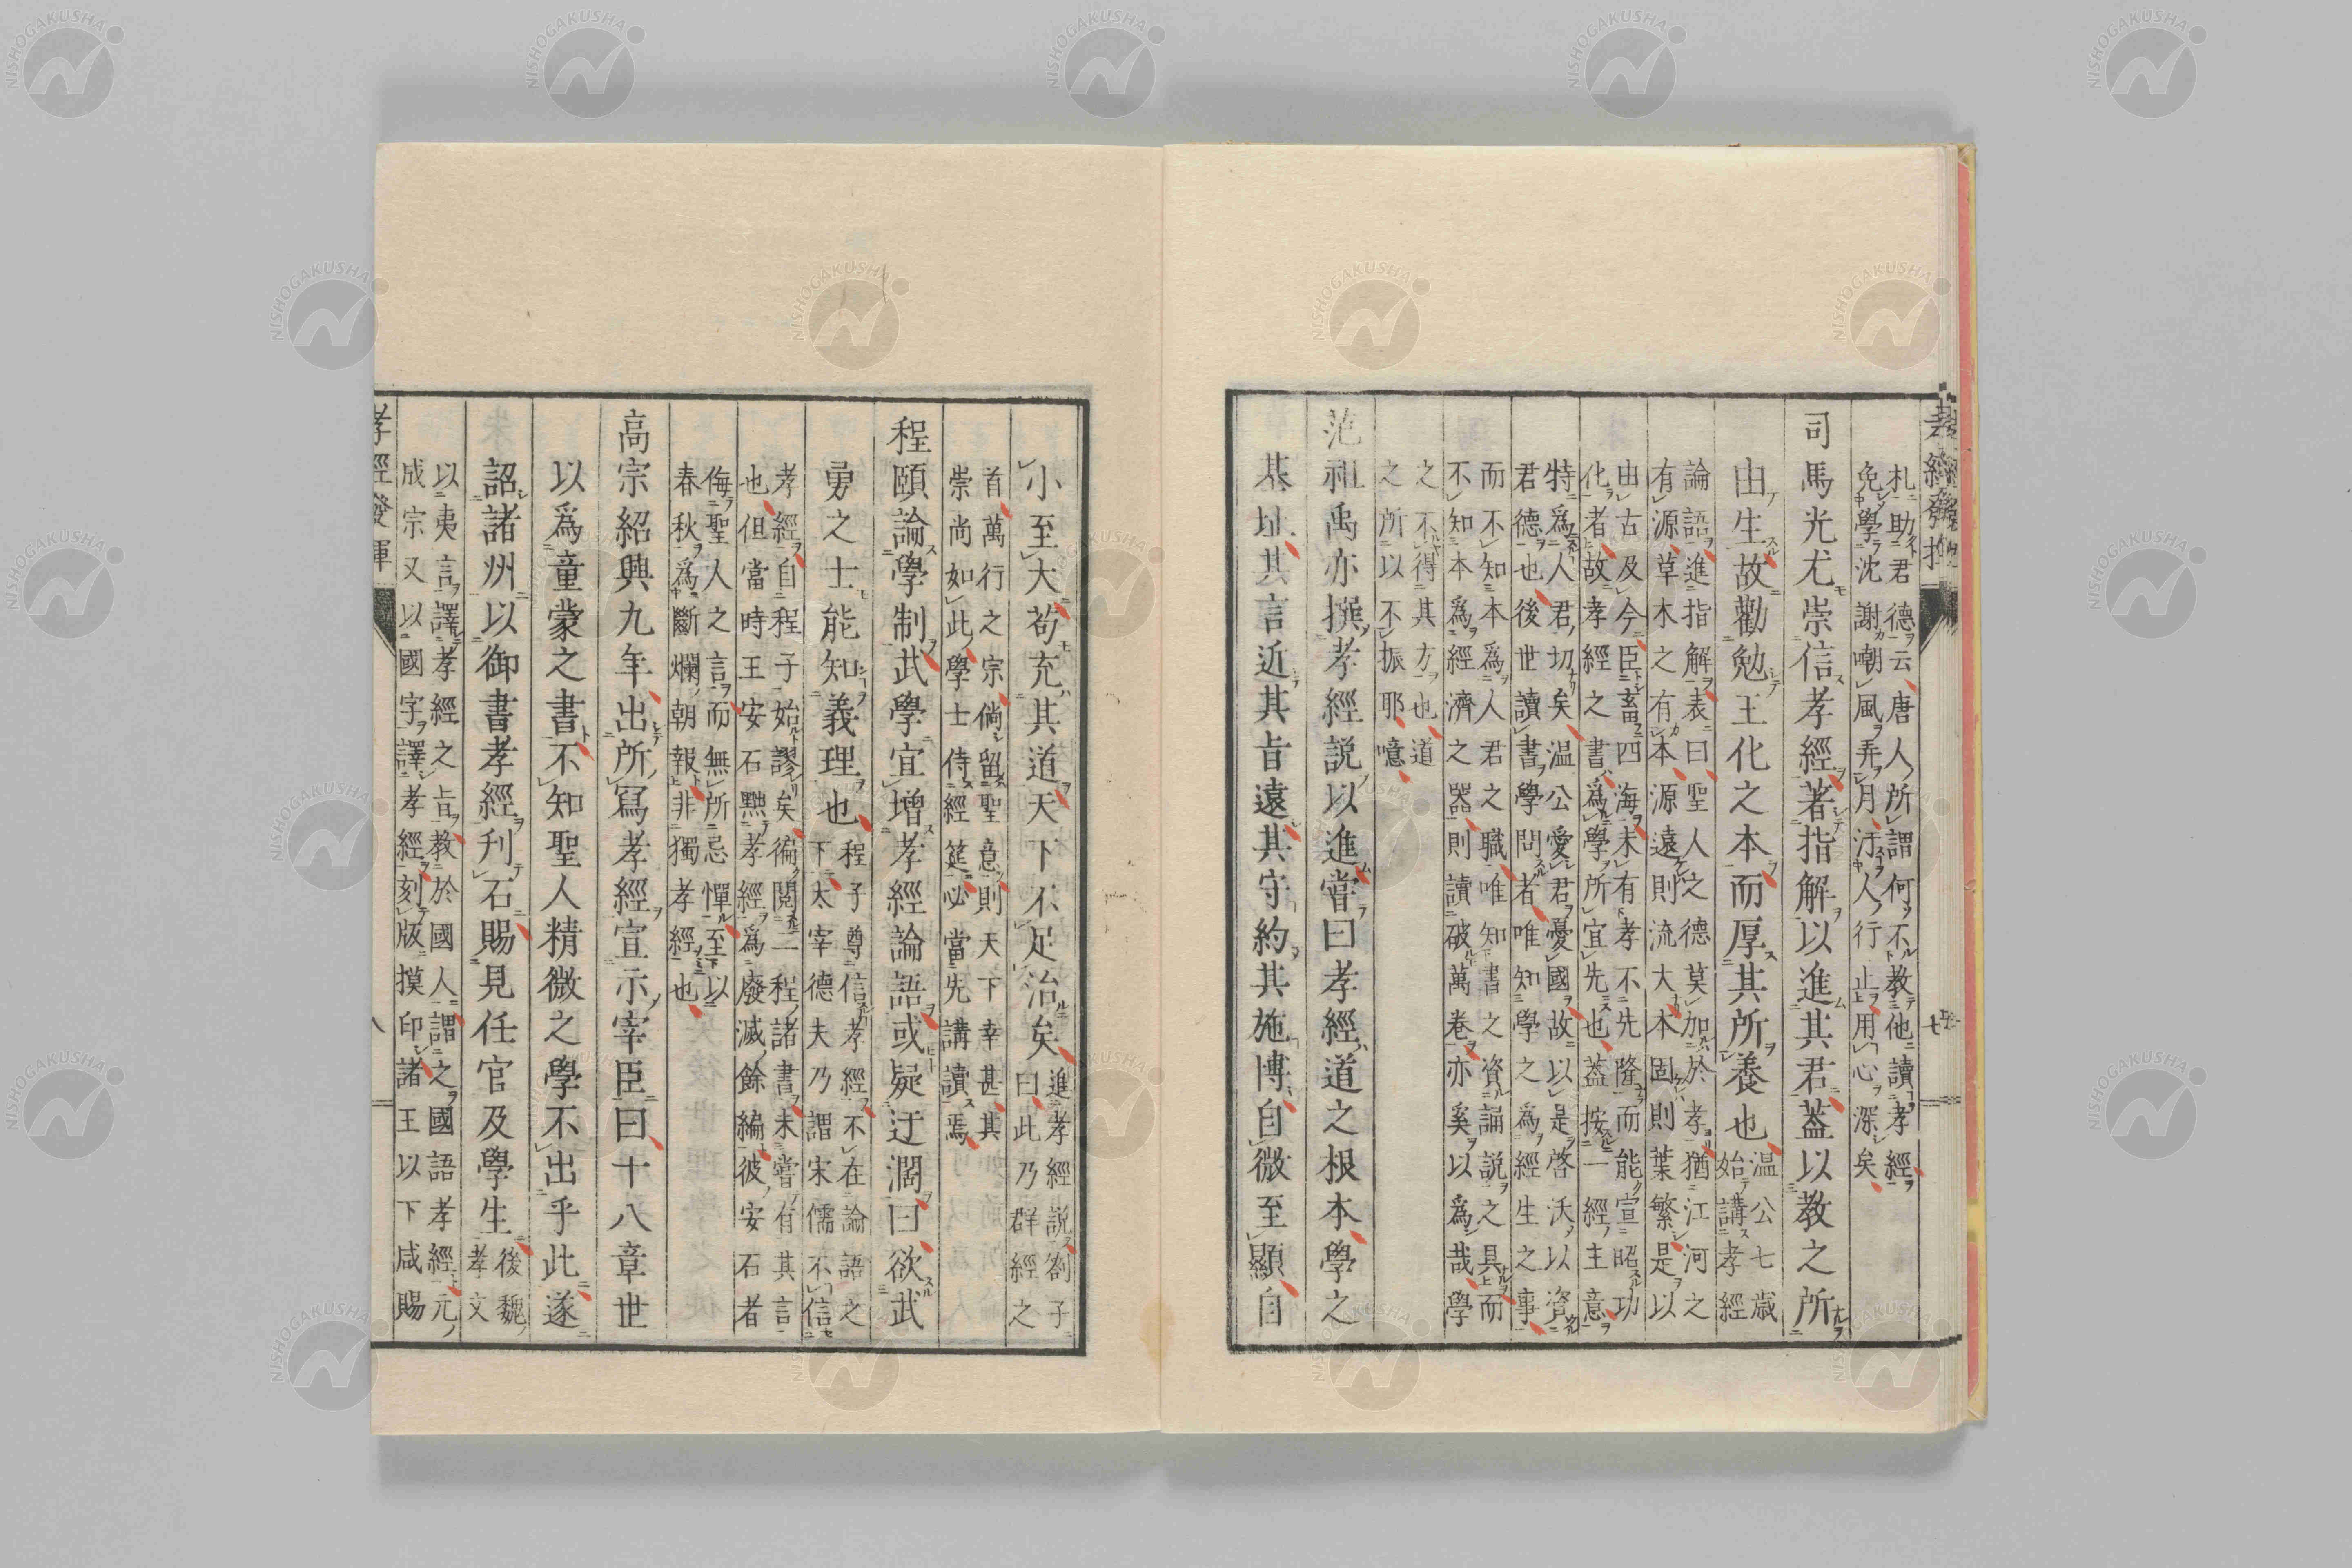 孝經發揮
七
札助君德云唐人所謂何不教他讀孝經
免學沈謝嘲風弄月汙人行止用心深矣
司馬光尤崇信孝經著指解以進其君葢以教之所
由生故勸勉王化之本而厚其所養也
温公七歳
始講孝經
論語進指解表曰聖人之德莫加於孝猶江河之
有源草木之有本源遠則流大本固則葉繁是以
由古及今臣畜四海未有孝不先隆而能宣昭功
化者故孝經之書爲學所宜先也葢按一經主意
特爲人君切矣温公愛君憂國故以是啓沃以資
君德也後世讀書學問者唯知學之為經生之事
而不知本為人君之職唯知書之資誦説之具而
不知本爲經濟之器則讀破萬卷亦奚以爲哉學
之不得其方也道
之所以不振耶噫
范祖禹亦撰孝經説以進嘗曰孝經道之根本學之
基址其言近其㫖遠其守約其施博自微至顯自
小至大苟充其道天下不足治矣
進孝經説劄子
曰此乃群經之
首萬行之宗倘留聖意則天下幸甚其
崇尚如此學士侍經筵必當先講讀焉
程頤論學制武學宜增孝經論語或疑迂濶曰欲武
勇之士能知義理也
程子尊信孝經不在論語之
下太宰德夫乃謂宋儒不信
孝經自程子始謬矣徧閲二程諸書未嘗有其言
也但當時王安石黜孝經為廢滅餘編彼安石者
侮聖人之言而無所忌憚至以
春秋爲斷爛朝報非獨孝經也
高宗紹興九年出所冩孝經宣示宰臣曰十八章世
以爲童蒙之書不知聖人精微之學不出乎此遂
詔諸州以御書孝經刋石賜見任官及學生
後魏
孝文
以夷言譯孝經之㫖教於國人謂之國語孝經元
成宗又以國字譯孝經刻版摸印諸王以下咸賜
孝經發揮
八